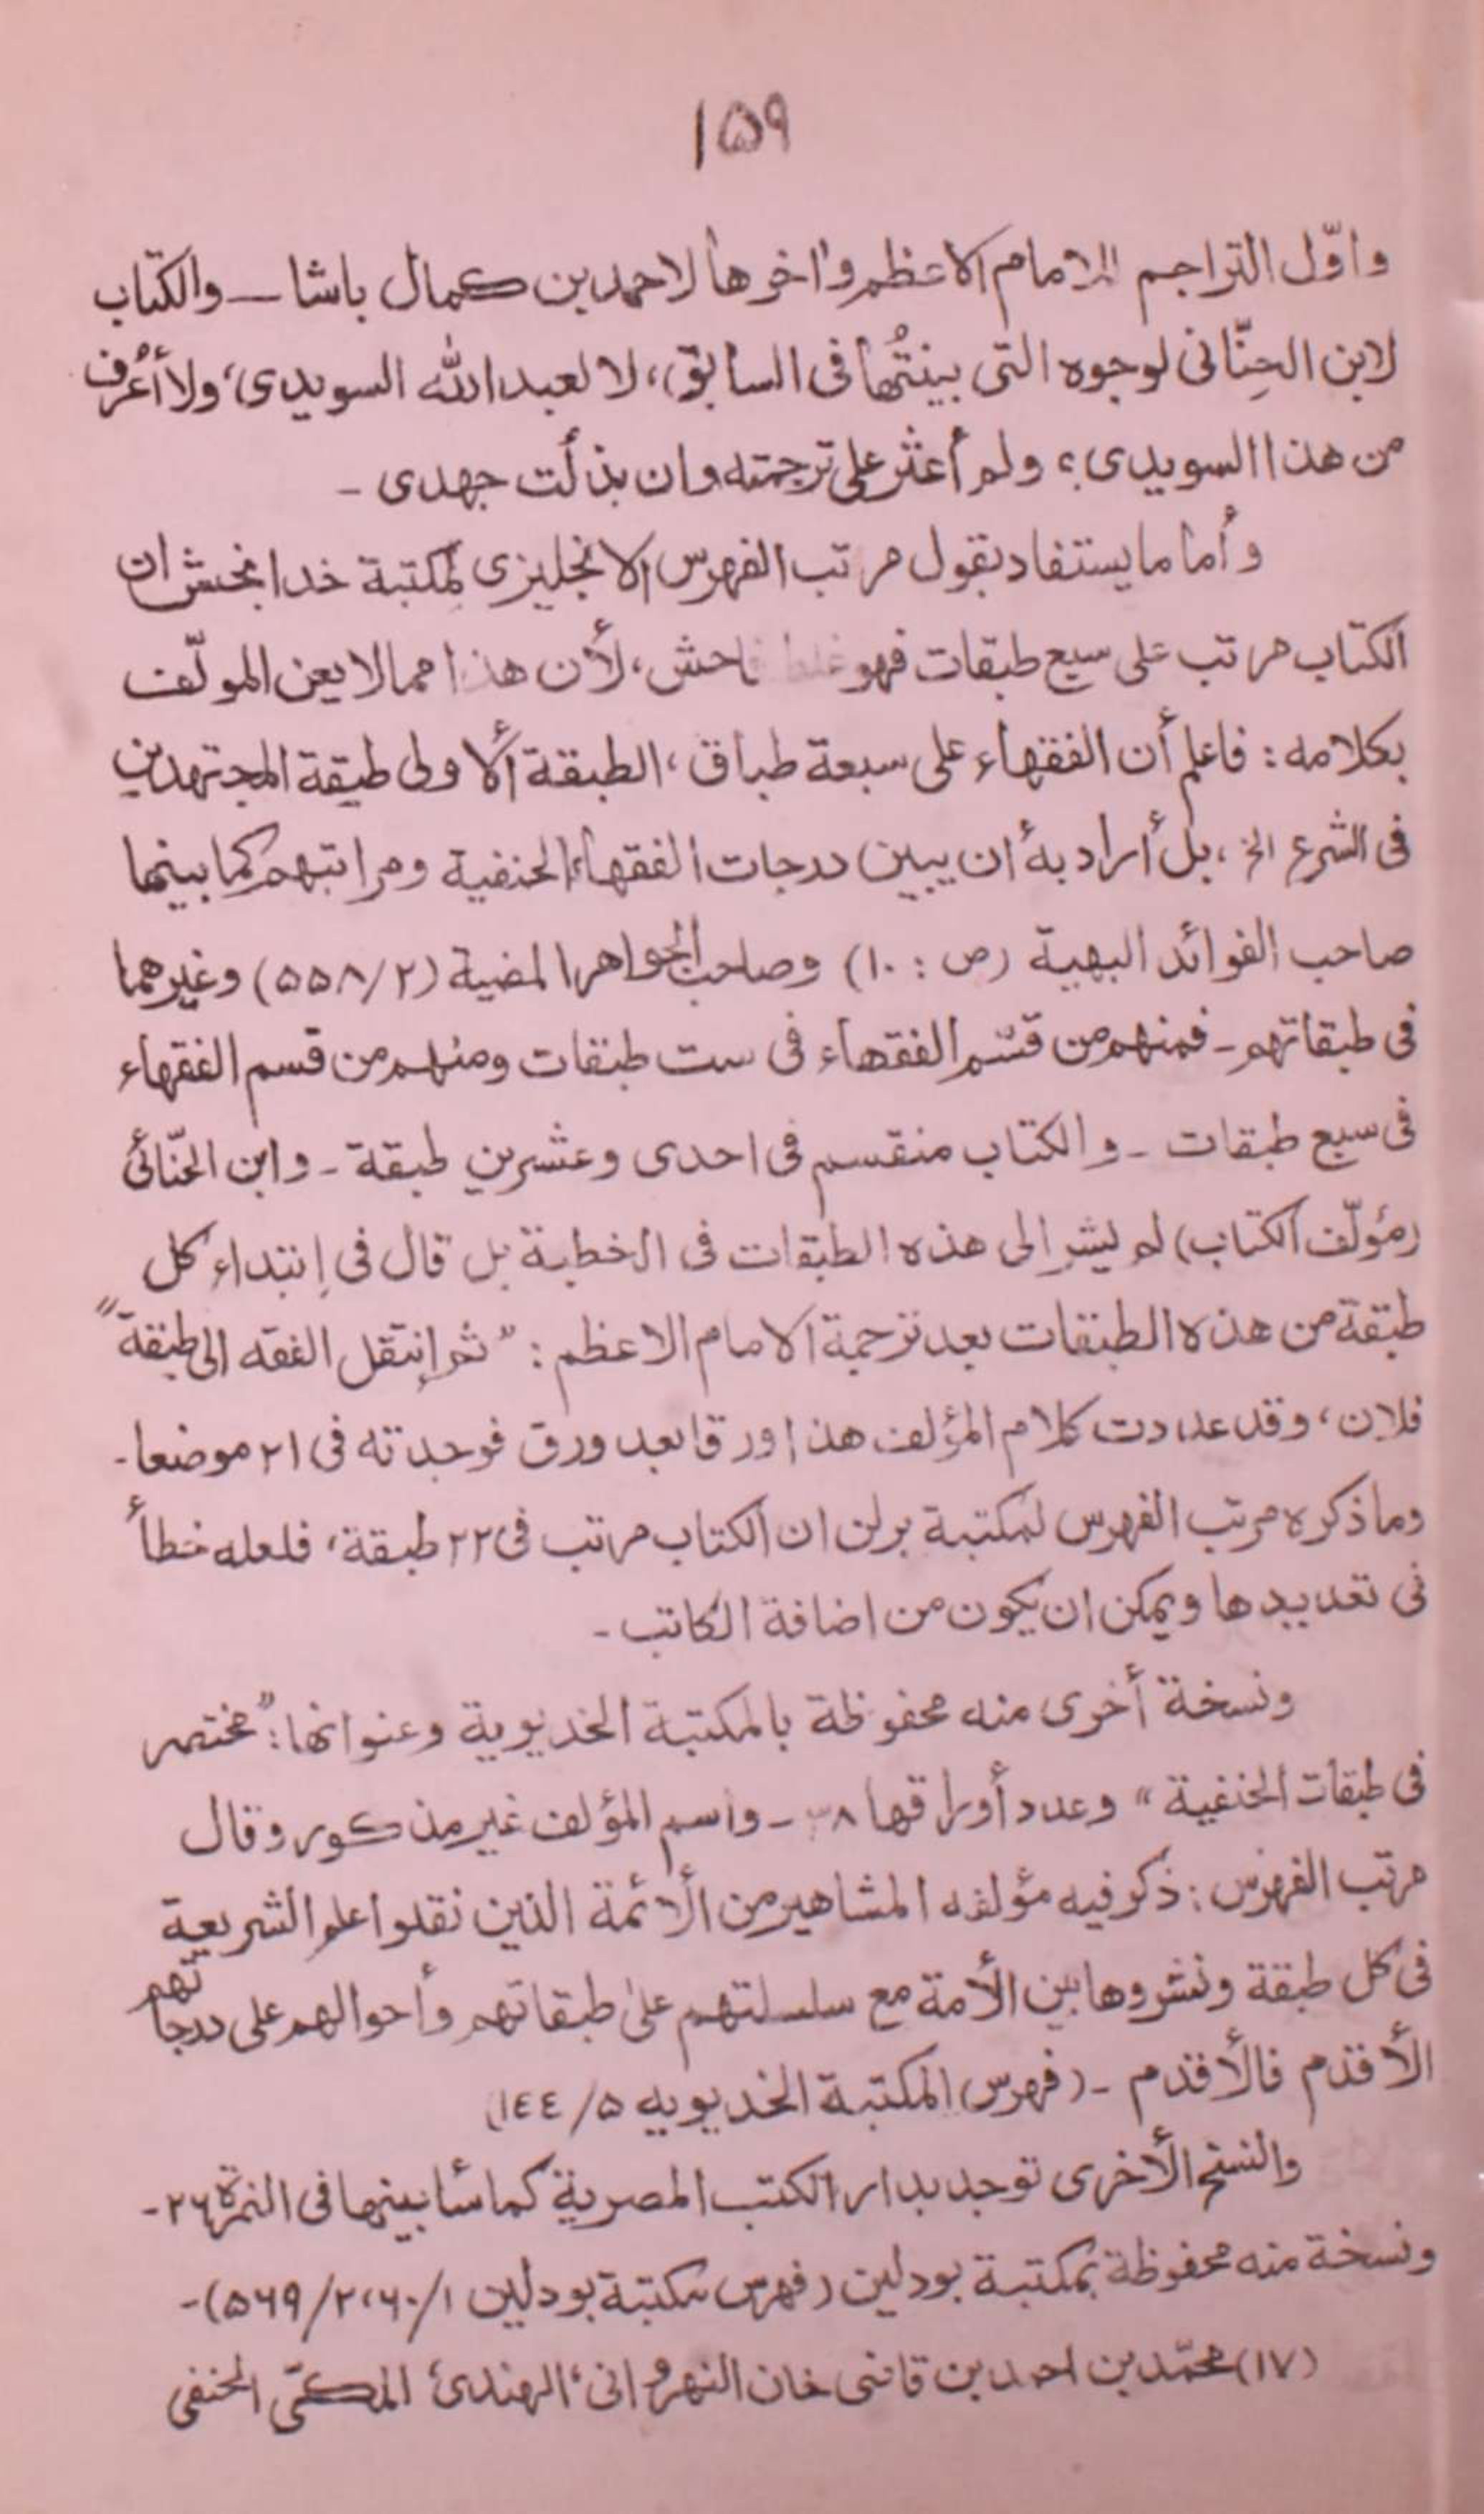 ١٥٩
واوّل التراجم للامام الاعظم واٰخوها لاحمد بن كمال باشا ــ والكتاب
لابن الحِنّانى لوجوه التى بينتُها فى السابق، لا لعبد الله السويدى، ولا أعرف
من هذا السويدى؟ ولم أعثر على ترجمته وان بذلت جهدى -
وأما ما يستفاد بقول مرتب الفهرس الانجليزى لمكتبة خدا بخش ان
الكتاب مرتب على سبع طبقات فهو غلط فاحش، لأن هذا مما لا يعن المولّف
بكلامه: فاعلم أن الفقهاء على سبعة طباق، الطبقة الأولى طبقة المجتهدين
فى الشرع الخ، بل أراد به أن يبين درجات الفقهاء الحنفية ومراتبهم كما بينها
صاحب الفوائد البهية (ص: ١٠) وصاحب الجواهر المضية (٢/٥٥٨) وغيرهما
فى طبقاتهم - فمنهم من قسّم الفقهاء فى ست طبقات ومنهم من قسم الفقهاء
فى سبع طبقات - والكتاب منقسم فى احدى وعشرين طبقة - وابن الحنّائى
(مؤلّف الكتاب) لم يشر الى هذه الطبقات فى الخطبة بل قال فى إبتداء كل
طبقة من هذه الطبقات بعد ترجمة الامام الاعظم: "ثم إنتقل الفقه الى طبقة"
فلان، وقد عددت كلام المؤلف هذا ورقا بعد ورق فوجدته فى ٢١ موضعا -
وما ذكره مرتب الفهرس لمكتبة برلن ان الكتاب مرتب فى ٢٢ طبقة، فلعله خطأ
فى تعديدها ويمكن ان يكون من اضافة الكاتب -
ونسخة أخرى منه محفوظة بالمكتبة الخديوية وعنوانها: "مختصر
فى طبقات الحنفية" وعدد أوراقها ٣٨ - واسم المؤلف غير مذكور وقال
مرتب الفهرس: ذكر فيه مؤلفه المشاهير من الأئمة الذين نقلوا علم الشريعة
فى كل طبقة ونشروها بين الأمة مع سلسلتهم على طبقاتهم وأحوالهم على درجاتهم
الأقدم فالأقدم - (فهرس المكتبة الخديويه ٥/١٤٤)
والنسخ الأخرى توجد بدار الكتب المصرية كما سأبينها فى النمرة ٢٦ -
ونسخة منه محفوظة بمكتبة بودلين (فهرس مكتبة بودلين ١/٦٠، ٢/٥٦٩) -
(١٧) محمّد بن احمد بن قاضى خان النهروانى، الهندى المكىّ الحنفى